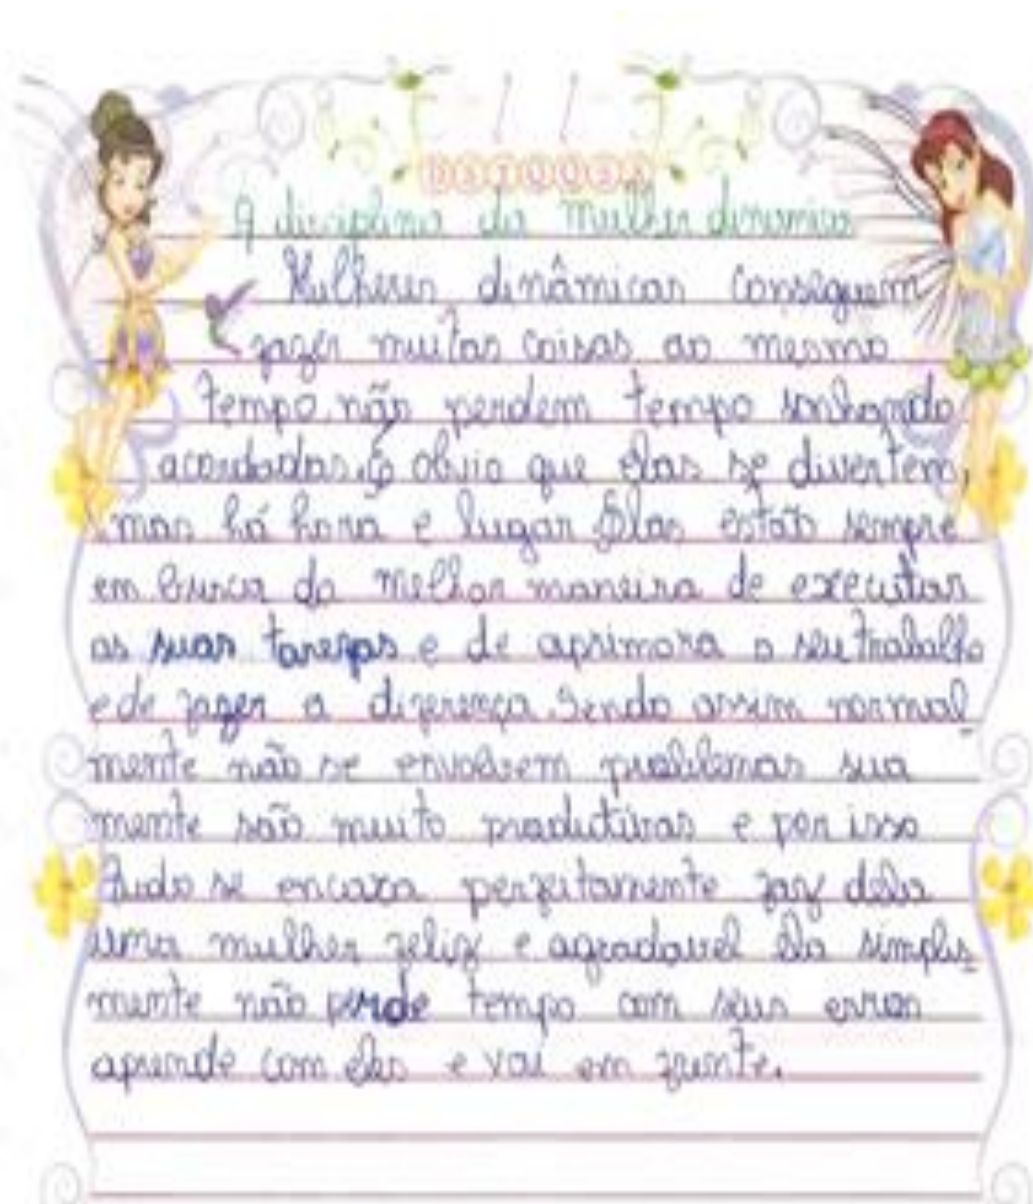 A disciplina da mulher dinamica
Mulheres dinâmicas conseguem
fazer muitas coisas ao mesmo
tempo, não perdem tempo sonhando
acordadas. É obvio que elas se divertem,
mas há hora e lugar. Elas estão sempre
em busca da melhor maneira de executar
as suas tarefas e de aprimora o seu trabalho
e de fazer a diferença. Sendo assim normal_
mente não se envolvem problemas sua
mente são muito produtivas e por isso
tudo se encaxa perfeitamente faz dela
uma mulher feliz e agradavel ela simples_
mente não perde tempo com seus erros
aprende com eles e vai em frente.